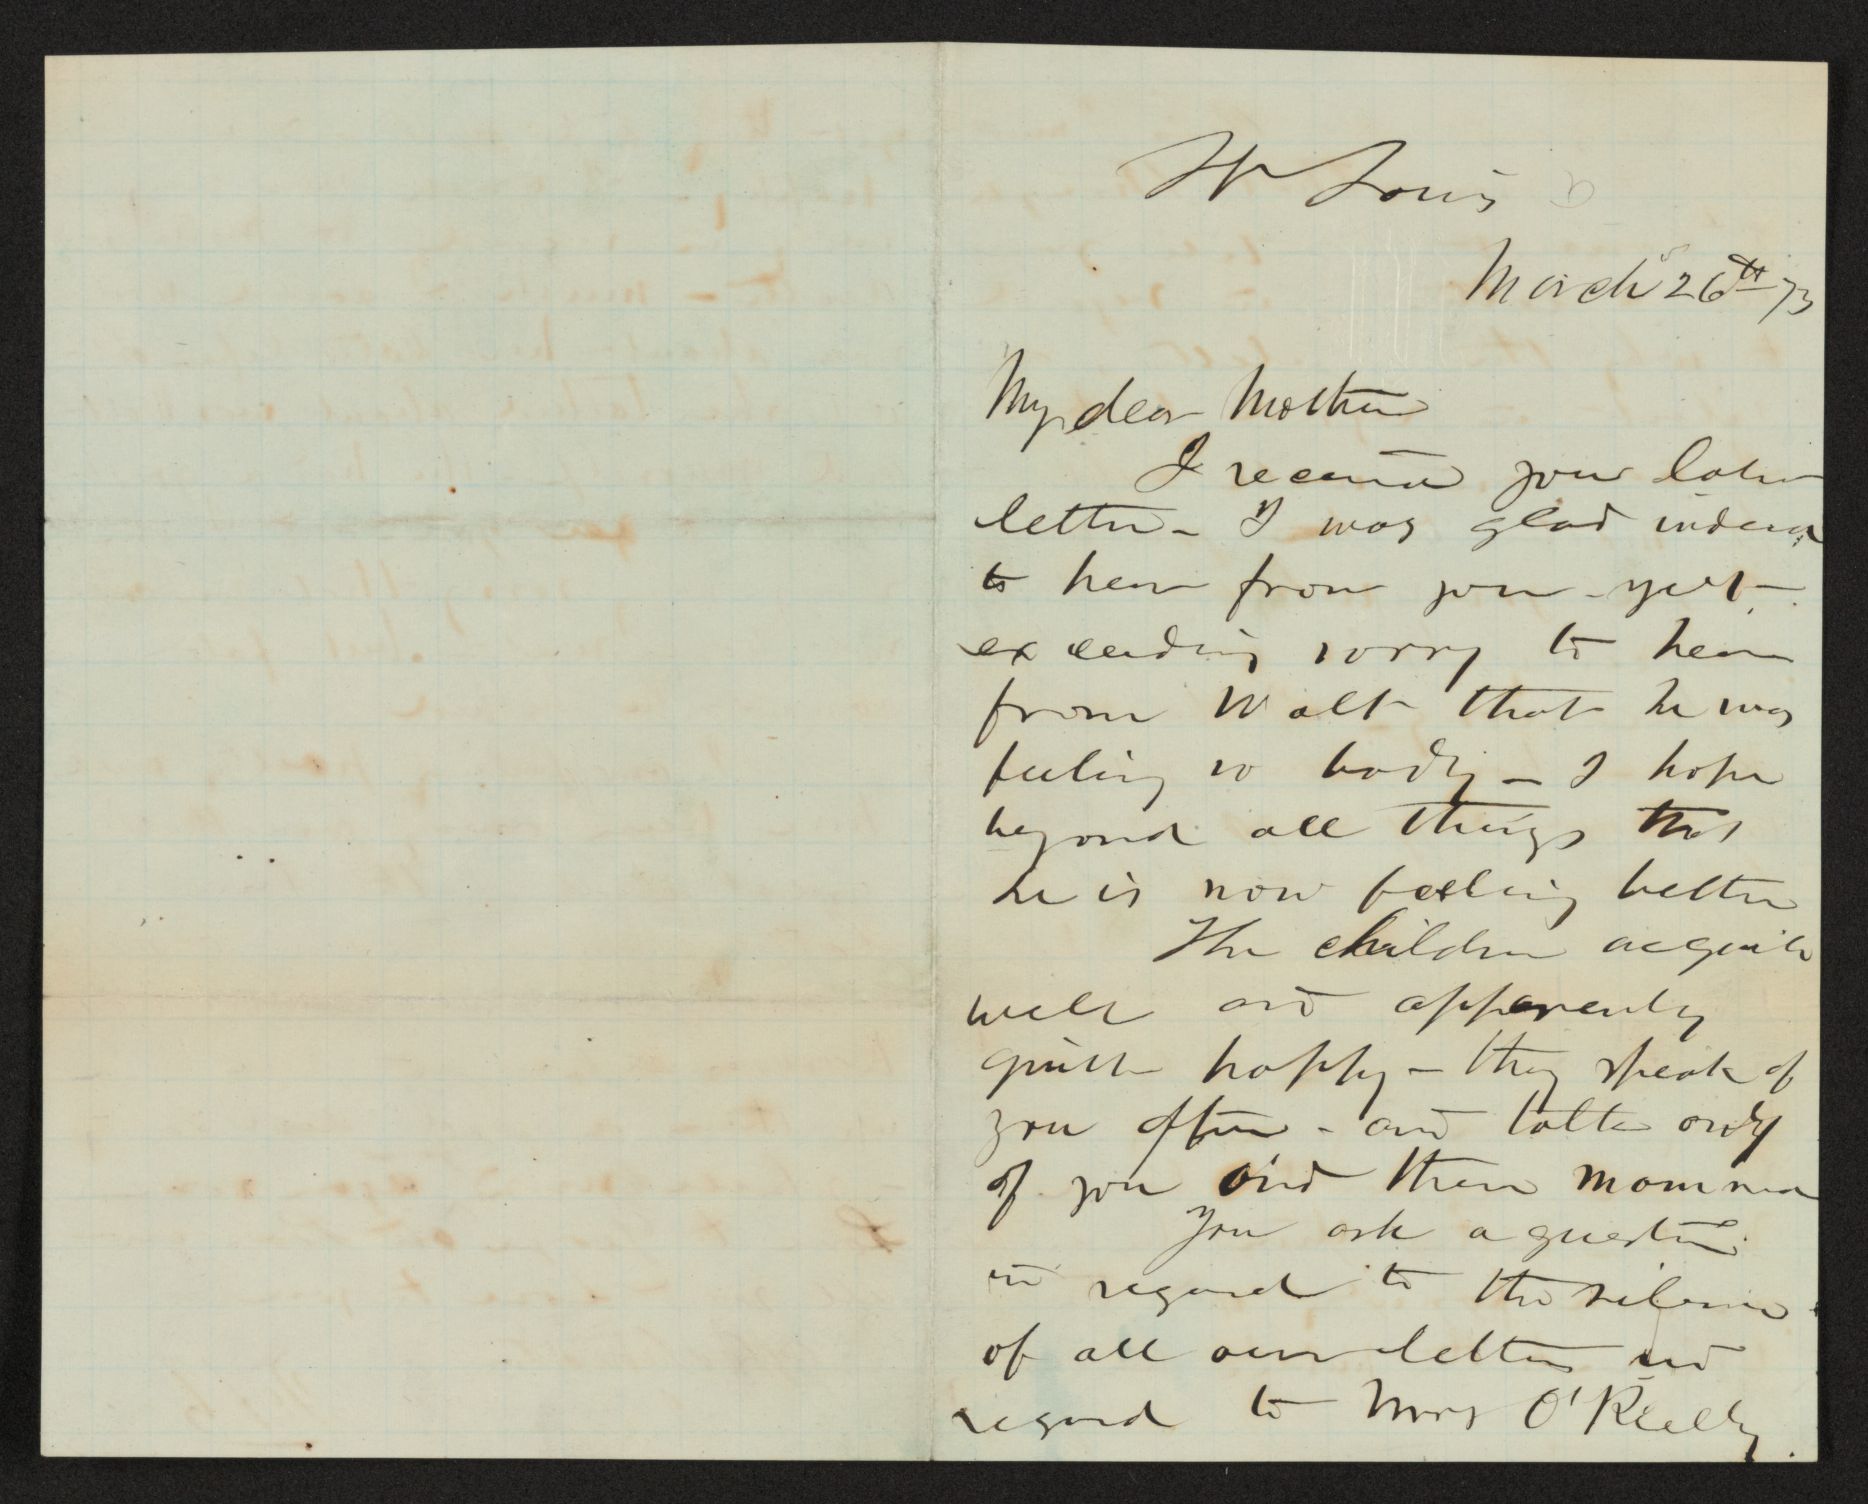 St Louis
March 26th 73
My dear Mother
I received your late
letter - I was glad indeed
to hear from you - yet
exceeding sorry to hear
from Walt that he was
feeling so badly - I hope
beyond all things that
he is now feeling better
The children are quite
well and apparently
quite happy - they speak of
you often - and talk only
of you and their momma
You ask a question
in regard to the silence
of all our letters in
regard to Mrs O'Reilly.